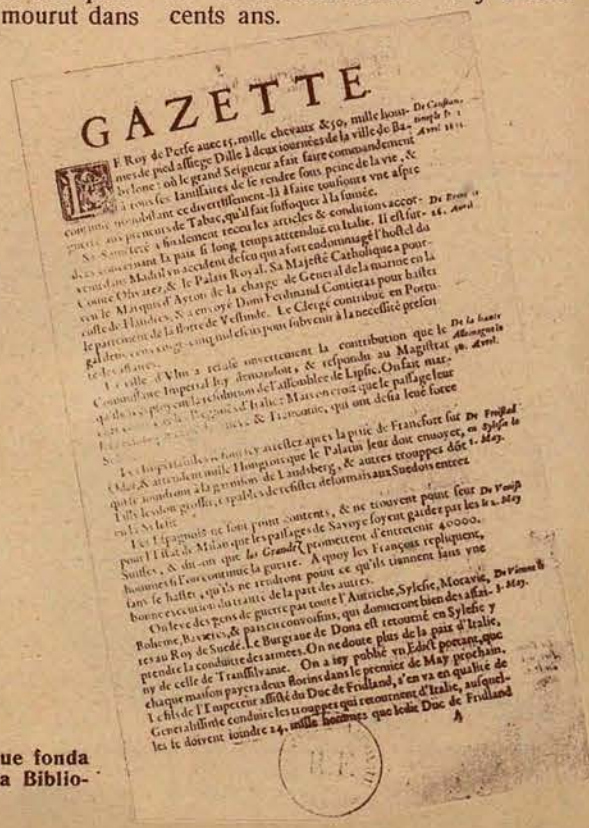 mourut dans cents ans.
GAZETTE
LE Roy de Perse auec 15. mille chevaux & 50, mille hom-
mes de pied assiege Dille à deux iournées de la ville de Ba-
bylone: où le grand Seigneur a fait faire commandement
à tous ses Ianissaires de se rendre sous peine de la vie, &
continuë nonobstant ce divertissement-là à faire tousiours vne aspre
guerre aux preneurs de Tabac, qu'il fait suffoquer à la fumée.
De Constan-
tinople le 2
Avril 1631.
Sa Saincteté a finalement receu les articles & conditions accor-
dées concernant la paix si long temps attenduë en Italie. Il est sur-
venu dans Madril vn accident de feu qui a fort endommagé l'hostel du
Comte Olivarez, & le Palais Royal. Sa Majesté Catholique a pour-
veu le Marquis d'Ayton de la charge de General de la marine en la
coste de Flandres, & a envoyé Dom Ferdinand Contieras pour haster
le partement de la flotte de Vestinde. Le Clergé contribuë en Portu-
gal deux cens vingt-cinq mil escus pour subvenir à la necessité presen-
te des affaires.
26. Avril
La ville d'Vlm a refusé ouvertement la contribution que le
Commissaire Imperial luy demandoit, & respondu au Magistrat
qu'ils employent la resolution de l'assemblee de Lipsic. On fait mar-
Italie: Mais on croit que le passage leur
& Franconie, qui ont desia leué force
De la haute
Allemagne le
30. Avril.
Les Imperialistes se sont icy arrestez apres la prise de Francfort sur
Oder, & attendent mille Hongrois que le Palatin leur doit envoyer,
qui se joindront à la garnison de Landsberg, & autres trouppes dont
Tilly les doit grossir, capables de resister desormais aux Suedois entrez
en la Sylesie
De Freistad
en Sylesie le
1. May.
Les Espagnols ne sont point contents, & ne trouvent point seur
pour l'Estat de Milan que les passages de Savoye soyent gardez par les
Suisses, & dit-on que los Grandes promettent d'entretenir 40000.
hommes si l'on continuë la guerre. A quoy les François repliquent,
sans se haster, qu'ils ne rendront point ce qu'ils tiennent sans vne
bonne execution du traitté de la part des autres.
De Venise
le 2. May
On leve des gens de guerre par toute l'Autriche, Sylesie, Moravie,
Boheme, Bavieres, & païs circonvoisins, qui donneront bien des affai-
res au Roy de Suede. Le Burgrave de Dona est retourné en Sylesie y
prendre la conduite des armées. On ne doute plus de la paix d'Italie,
ny de celle de Transsilvanie. On a icy publié vn Edict portant, que
chaque maison payera deux florins dans le premier de May prochain.
Le fils de l'Empereur assisté du Duc de Fridland, s'en va en qualité de
Generalissime conduire les trouppes qui retournent d'Italie, ausquel-
les se doivent ioindre 24. mille hommes que ledit Duc de Fridland
De Vienne le
3. May.
A
ue fonda
a Biblio-